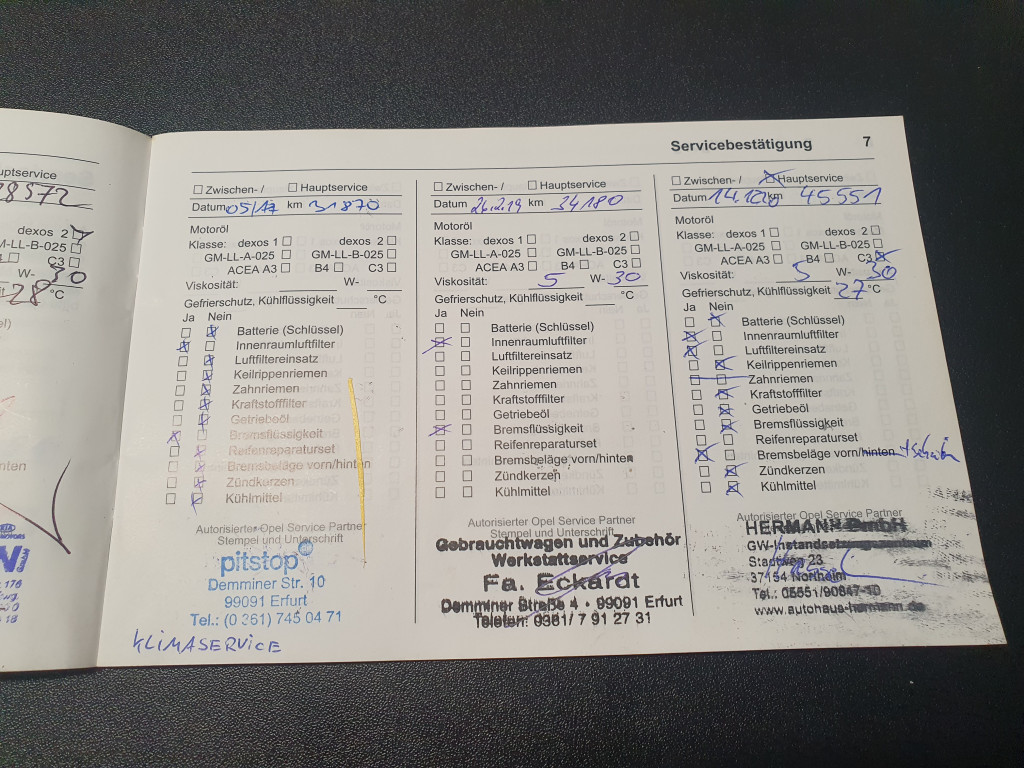 uptservice
28572
dexos 2
M-LL-B-025
C3
W- 30
28 °C
Servicebestätigung 7
Zwischen- / Hauptservice
Datum 05/17 km 31870
Motoröl
Klasse: dexos 1 dexos 2
GM-LL-A-025 GM-LL-B-025
ACEA A3 B4 C3
Viskosität: W-
Gefrierschutz, Kühlflüssigkeit °C
Ja Nein
Batterie (Schlüssel)
Innenraumluftfilter
Luftfiltereinsatz
Keilrippenriemen
Zahnriemen
Kraftstofffilter
Getriebeöl
Bremsflüssigkeit
Reifenreparaturset
Bremsbeläge vorn/hinten
Zündkerzen
Kühlmittel
Autorisierter Opel Service Partner
Stempel und Unterschrift
pitstop
Demminer Str. 10
99091 Erfurt
Tel.: (0 361) 745 04 71
KLIMASERVICE
Zwischen- / Hauptservice
Datum 26.2.19 km 34180
Motoröl
Klasse: dexos 1 dexos 2
GM-LL-A-025 GM-LL-B-025
ACEA A3 B4 C3
Viskosität: 5 W- 30
Gefrierschutz, Kühlflüssigkeit °C
Ja Nein
Batterie (Schlüssel)
Innenraumluftfilter
Luftfiltereinsatz
Keilrippenriemen
Zahnriemen
Kraftstofffilter
Getriebeöl
Bremsflüssigkeit
Reifenreparaturset
Bremsbeläge vorn/hinten
Zündkerzen
Kühlmittel
Autorisierter Opel Service Partner
Stempel und Unterschrift
Gebrauchtwagen und Zubehör
Werkstattservice
Fa. Eckardt
Demminer Straße 4 · 99091 Erfurt
Telefon: 0361/ 7 91 27 31
Zwischen- / Hauptservice
Datum km 45551
Motoröl
Klasse: dexos 1 dexos 2
GM-LL-A-025 GM-LL-B-025
ACEA A3 B4 C3
Viskosität: 5 W- 30
Gefrierschutz, Kühlflüssigkeit 27 °C
Ja Nein
Batterie (Schlüssel)
Innenraumluftfilter
Luftfiltereinsatz
Keilrippenriemen
Zahnriemen
Kraftstofffilter
Getriebeöl
Bremsflüssigkeit
Reifenreparaturset
Bremsbeläge vorn/hinten
Zündkerzen
Kühlmittel
Autorisierter Opel Service Partner
HERMANN GmbH
GW-Instandsetzungszentrum
Stadtweg 23
37154 Northeim
www.autohaus-hermann.de